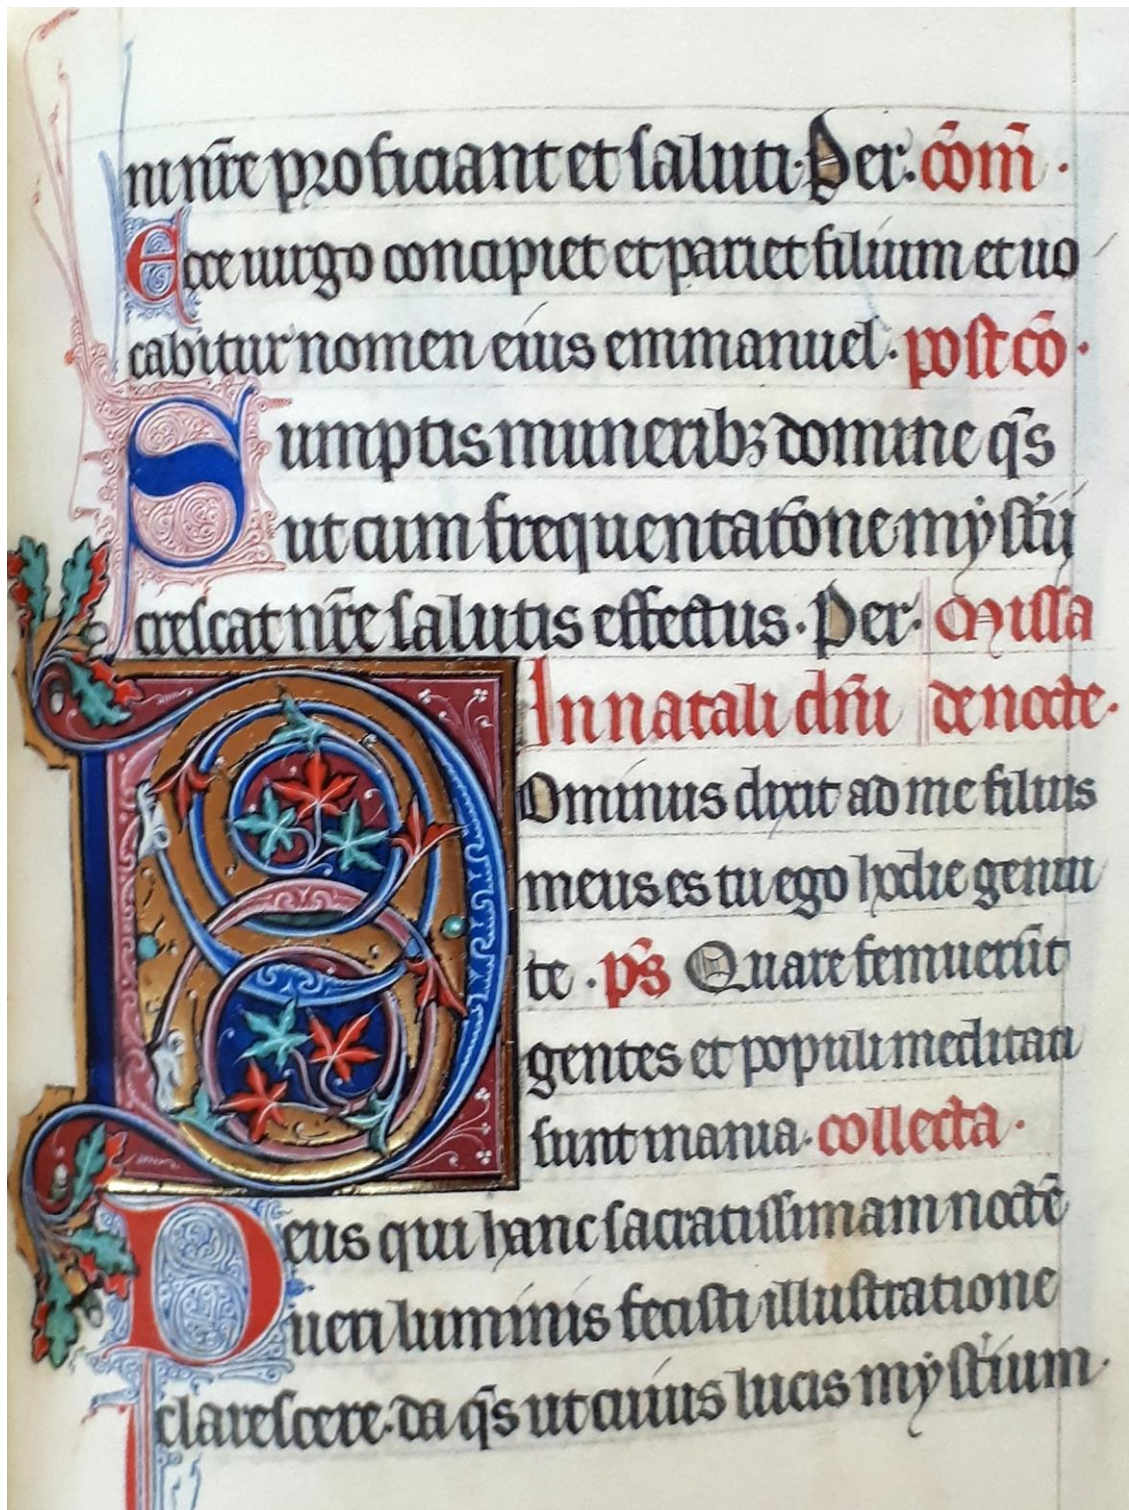 ni nr̄e proficiant et saluti. Per. cōm̄.
Ecce uirgo concipiet et pariet filium et uo
cabitur nomen eius emmanuel. post cō.
Sumptis muneribꝫ domine qs̄
ut cum frequentatōne mẏstii
crescat nr̄e salutis effectus. Per. Missa
In natali dn̄i de nocte.
Dominus dixit ad me filius
meus es tu ego hodie genui
te. ps̄ Quare fremuerūt
gentes et populi meditati
sunt inania. collecta.
Deus qui hanc sacratissimam noctē
ueri luminis fecisti illustratione
clarescere. da qs̄ ut cuius lucis mẏst'ium